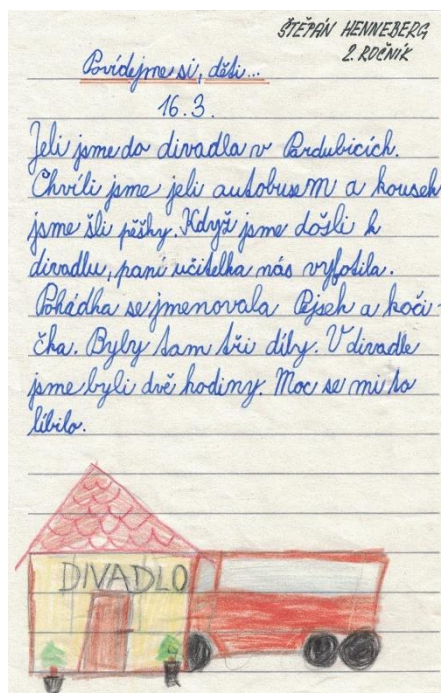 ŠTĚPÁN HENNEBERG
2. ROČNÍK
Povídejme si, děti...
16.3.
Jeli jsme do divadla v Pardubicích.
Chvíli jsme jeli autobusem a kousek
jsme šli pěšky. Když jsme došli k
divadlu, paní učitelka nás vyfotila.
Pohádka se jmenovala Pejsek a koči-
čka. Byly tam tři díly. V divadle
jsme byli dvě hodiny. Moc se mi to
líbilo.
DIVADLO